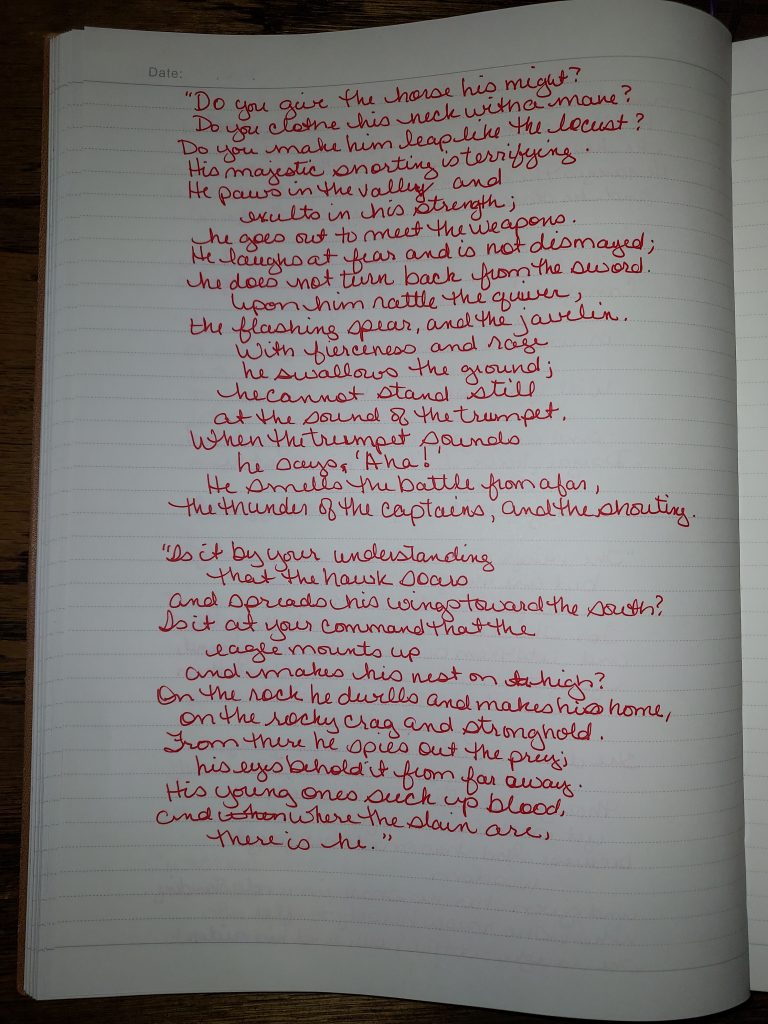 Date:
"Do you give the horse his might?
Do you clothe his neck with a mane?
Do you make him leap like the locust?
His majestic snorting is terrifying.
He paws in the valley and
exults in his strength;
he goes out to meet the weapons.
He laughs at fear and is not dismayed;
he does not turn back from the sword.
Upon him rattle the quiver,
the flashing spear, and the javelin.
With fierceness and rage
he swallows the ground;
he cannot stand still
at the sound of the trumpet.
When the trumpet sounds
he says, 'Aha!'
He smells the battle from afar,
the thunder of the captains, and the shouting.
"Is it by your understanding
that the hawk soars
and spreads his wings toward the south?
Is it at your command that the
eagle mounts up
and makes his nest on high?
On the rock he dwells and makes his home,
on the rocky crag and stronghold.
From there he spies out the prey;
his eyes behold it from far away.
His young ones suck up blood,
and where the slain are,
there is he."